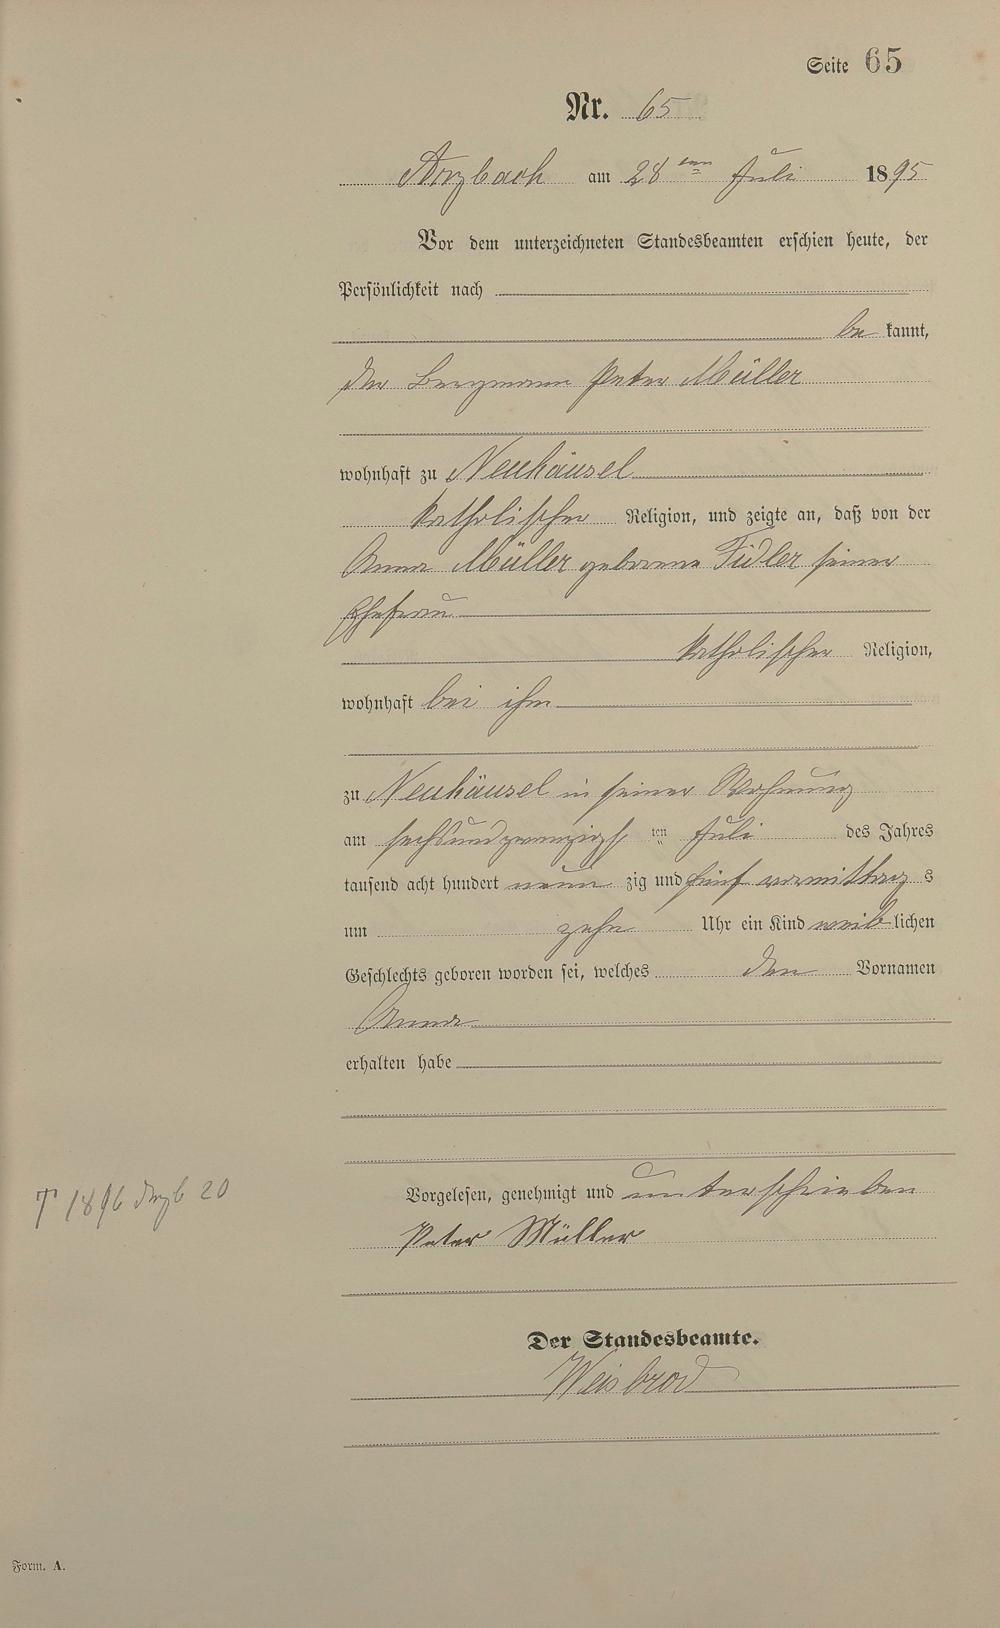 Seite 65
Nr. 65
Arzbach am 28ten Juli 1895
Vor dem unterzeichneten Standesbeamten erschien heute, der
Persönlichkeit nach
be kannt,
der Bergmann Peter Müller
wohnhaft zu Neuhäusel
katholischer Religion, und zeigte an, daß von der
Anna Müller geborene Fidler seiner
Ehefrau
katholischer Religion,
wohnhaft bei ihm
zu Neuhäusel in seiner Wohnung
am sechsundzwanzigsten Juli des Jahres
tausend acht hundert neun zig und fünf vormittag s
um zehn Uhr ein Kind weiblichen
Geschlechts geboren worden sei, welches den Vornamen
Anna
erhalten habe
Vorgelesen, genehmigt und unterschrieben
Peter Müller
† 1896 Arzb 20
Der Standesbeamte.
Weisbrod
Form. A.